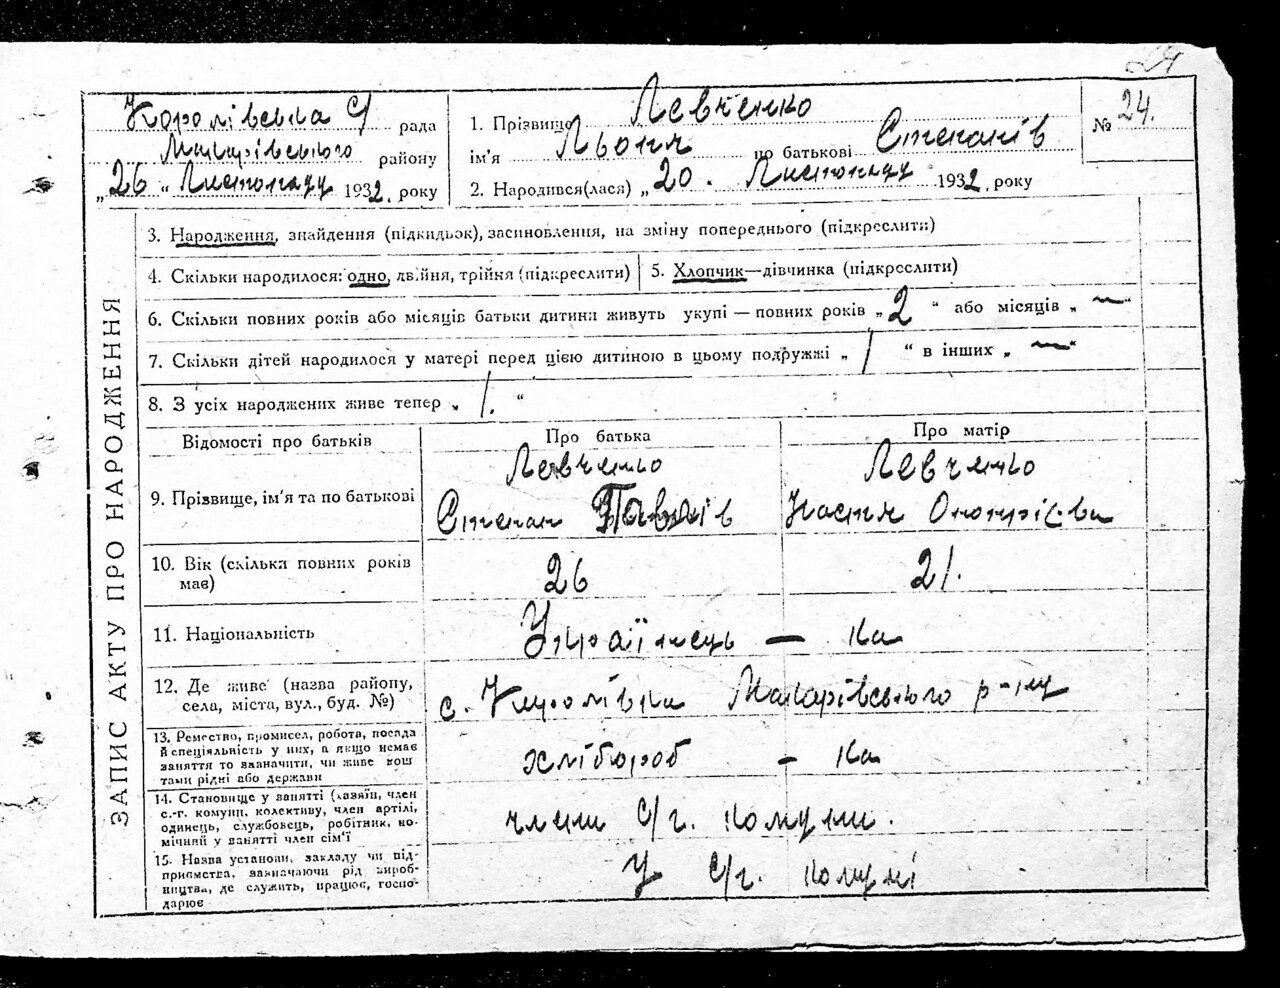 24
Королівська С/ рада
Макарівського району
„26 “ Листопаду 1932. року
1. Прізвище Левченко
ім'я Льоня по батькові Степанів
2. Народився(лася) „20. Листопаду 1932. року
№ 24.
ЗАПИС АКТУ ПРО НАРОДЖЕННЯ
3. Народження, знайдення (підкидьок), засиновлення, на зміну попереднього (підкреслити)
4. Скільки народилося: одно, двійня, трійня (підкреслити) 5. Хлопчик—дівчинка (підкреслити)
6. Скільки повних років або місяців батьки дитини живуть укупі — повних років „ 2 “ або місяців „ — “
7. Скільки дітей народилося у матері перед цією дитиною в цьому подружжі „ 1 “ в інших „ — “
8. З усіх народжених живе тепер „ 1. “
Відомості про батьків Про батька Про матір
9. Прізвище, ім'я та по батькові Левченко Левченко
Степан Настя Онопрієва
10. Вік (скільки повних років
має) 26 21.
11. Національність Українець — ка
12. Де живе (назва району,
села, міста, вул., буд. №) с. Королівка Макарівського р-ну
13. Ремество, промисел, робота, посада
й спеціяльність у них, а якщо немає
заняття то зазначити, чи живе кош
тами рідні або держави хлібороб - ка
14. Становище у занятті (хазяїн, член
с.-г. комуни, колективу, член артілі,
одинець, службовець, робітник, по-
мічний у занятті член сім'ї член С/г. комуни.
15. Назва установи, закладу чи під-
приємства, зазначаючи рід вироб-
ництва, де служить, працює, госпо-
дарює У С/г. комуні